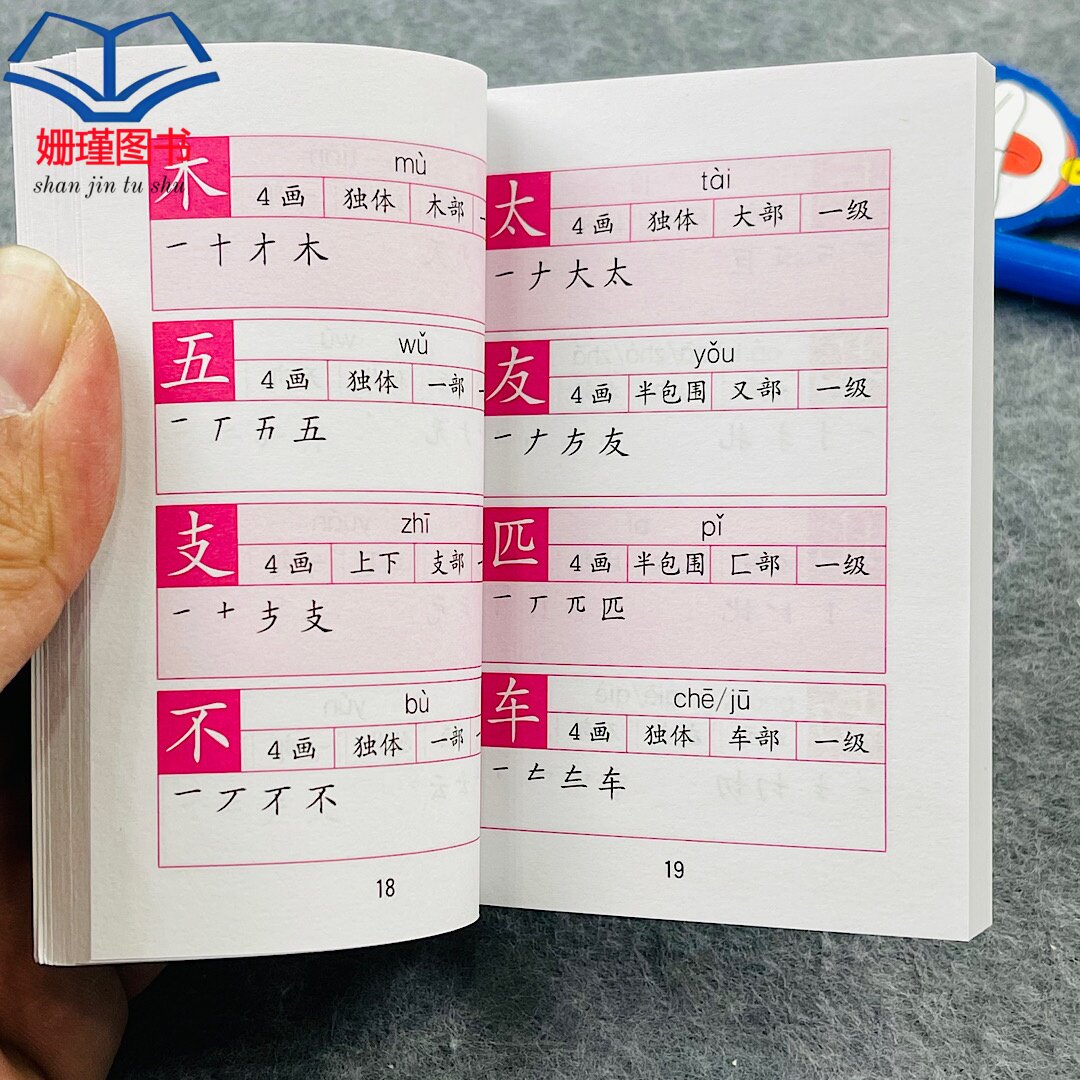 姗瑾图书
shan jin tu shu
木 mù
4画 独体 木部
一 十 才 木
五 wǔ
4画 独体 一部
一 丆 五
支 zhī
4画 上下 支部
一 十 支
不 bù
4画 独体 一部
一 丆 不
18
太 tài
4画 独体 大部 一级
一 ナ 大 太
友 yǒu
4画 半包围 又部 一级
一 ナ 方 友
匹 pǐ
4画 半包围 匚部 一级
一 丆 兀 匹
车 chē/jū
4画 独体 车部 一级
一 车
19